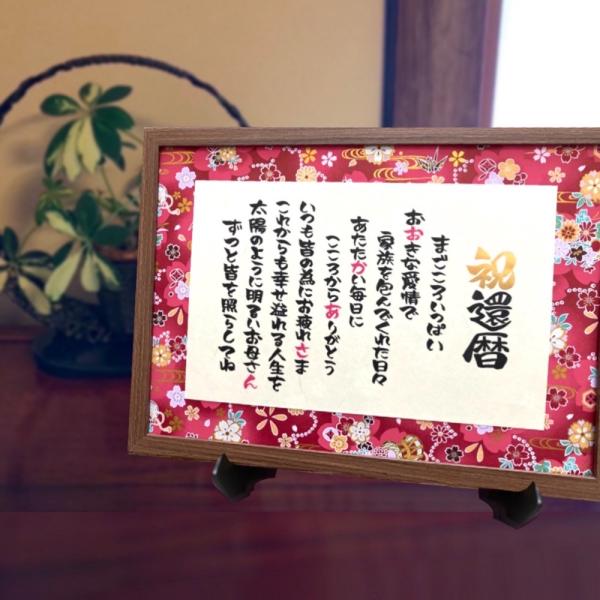 祝還暦
まごころいっぱい
おおきな愛情で
家族を包んでくれた日々
あたたかい毎日に
こころからありがとう
いつも皆の為にお疲れさま
これからも幸せ溢れる人生を
太陽のように明るいお母さん
ずっと皆を照らしてね